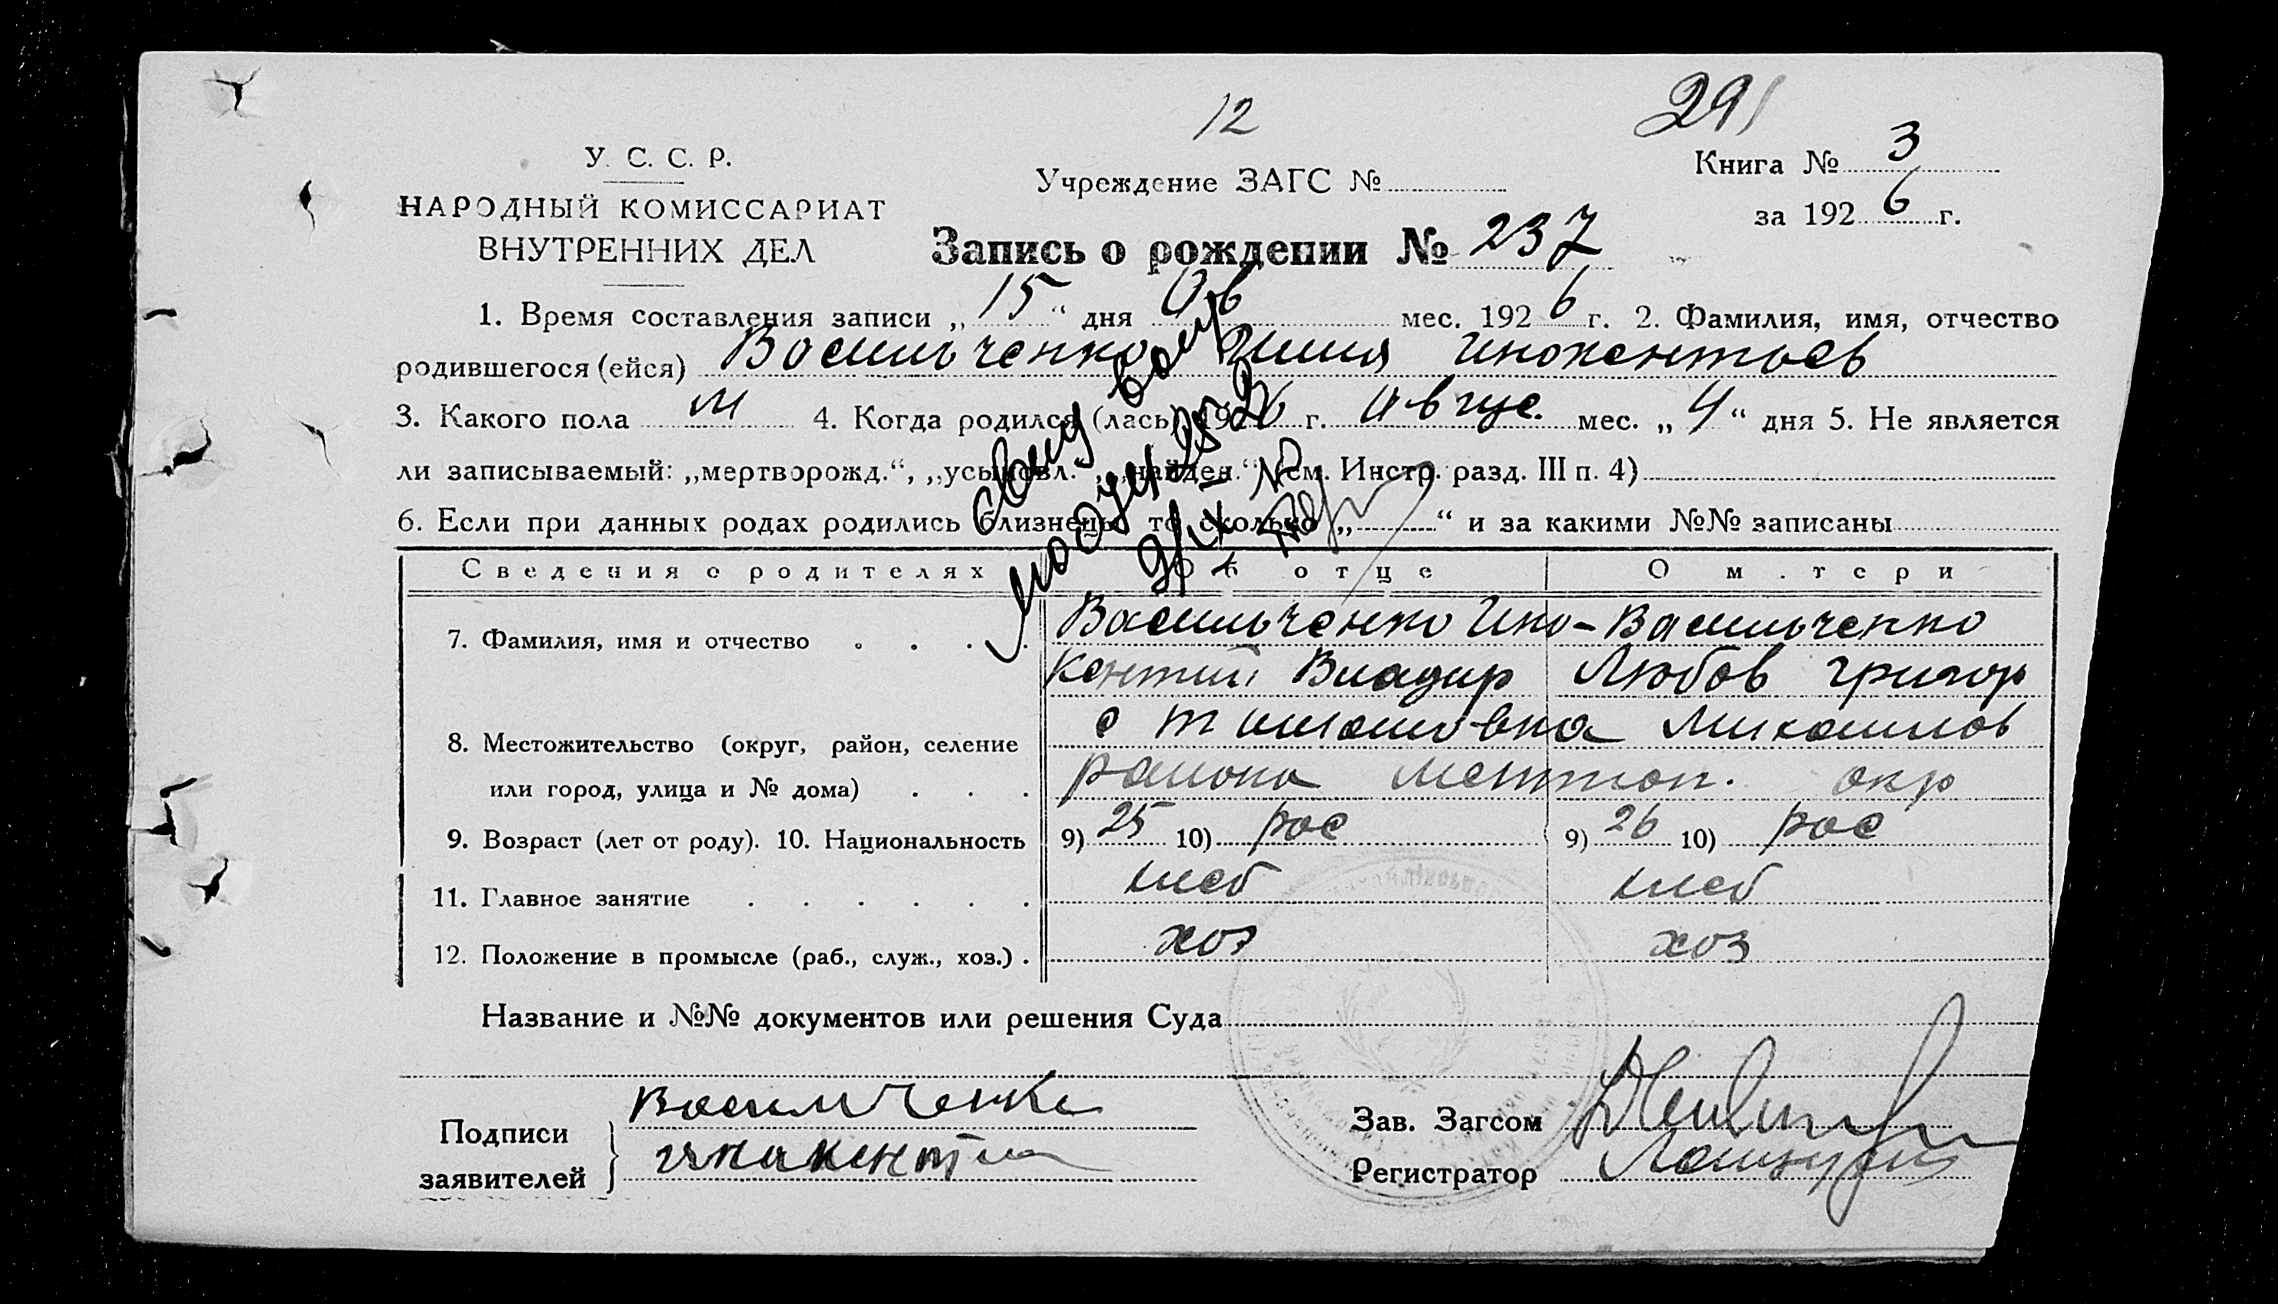 12
291
У. С. С. Р.
НАРОДНЫЙ КОМИССАРИАТ
ВНУТРЕННИХ ДЕЛ
Учреждение ЗАГС №
Книга № 3
за 1926 г.
Запись о рождении № 237
1. Время составления записи „15“ дня Ав мес. 1926 г. 2. Фамилия, имя, отчество
родившегося (ейся) Васильченко Инокентьев
3. Какого пола м 4. Когда родился (лась) 1926 г. Авгус. мес. „4“ дня 5. Не является
ли записываемый: „мертворожд.“, „усыновл.“, „найден.“ (см. Инстр. разд. III п. 4)
6. Если при данных родах родились близнецы, то сколько „ “ и за какими №№ записаны
Сведения о родителях Об отце О матери
7. Фамилия, имя и отчество Васильченко Ино- Васильченко
кентий Владир Любов Григор
8. Местожительство (округ, район, селение с Тимошовка Михайлов
или город, улица и № дома) района Мелитоп. окр
9. Возраст (лет от роду). 10. Национальность 9) 25 10) рос 9) 26 10) рос
11. Главное занятие хлеб хлеб
12. Положение в промысле (раб., служ., хоз.) хоз хоз
Название и №№ документов или решения Суда
Подписи
заявителей
Васильченко
Инакентий
Зав. Загсом
Регистратор